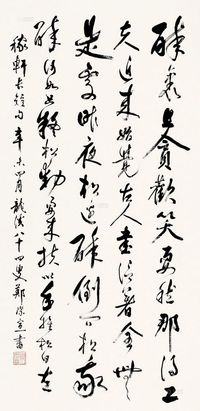 醉裏且貪歡笑要愁那得工
夫近来始覺古人書信著全無
是處昨夜松邊醉倒問松我
醉何如只疑松動要来扶以手推松曰去
稼軒長短句辛未四月龍溪八十四叟鄭書